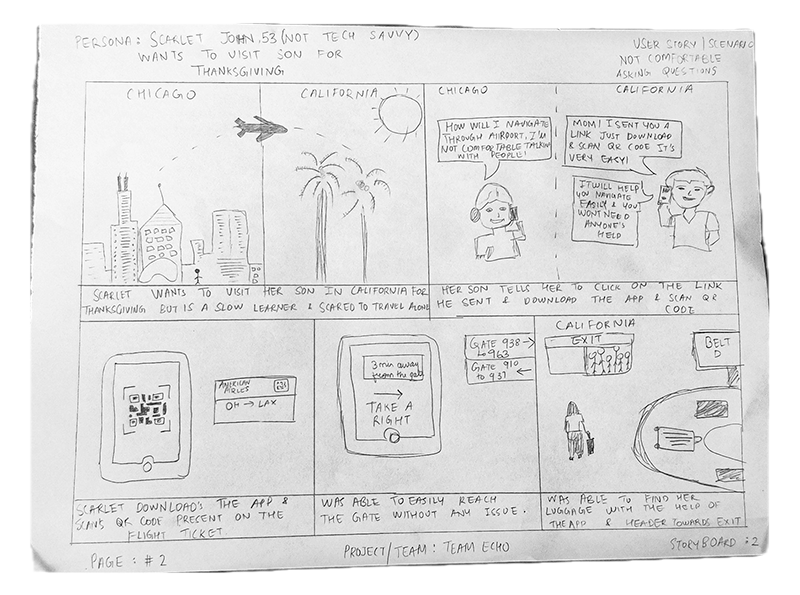 PERSONA: SCARLET JOHN.53 (NOT TECH SAVVY)
WANTS TO VISIT SON FOR
THANKSGIVING
USER STORY | SCENARIO
NOT COMFORTABLE
ASKING QUESTIONS
CHICAGO
CALIFORNIA
SCARLET WANTS TO VISIT HER SON IN CALIFORNIA FOR
THANKSGIVING BUT IS A SLOW LEARNER & SCARED TO TRAVEL ALONE
CHICAGO
CALIFORNIA
HOW WILL I NAVIGATE
THROUGH AIRPORT, I'M
NOT COMFORTABLE TALKING
WITH PEOPLE!
MOM! I SENT YOU A
LINK JUST DOWNLOAD
& SCAN QR CODE IT'S
VERY EASY!
IT WILL HELP
YOU NAVIGATE
EASILY & YOU
WONT NEED
ANYONE'S
HELP
HER SON TELLS HER TO CLICK ON THE LINK
HE SENT & DOWNLOAD THE APP & SCAN QR
CODE
AMERICAN
OH → LAX
SCARLET DOWNLOAD'S THE APP &
SCANS QR CODE PRESENT ON THE
FLIGHT TICKET.
3 min away
from the gate
TAKE A
RIGHT
GATE 938 →
to 963
GATE 910
to 937 ←
WAS ABLE TO EASILY REACH
THE GATE WITHOUT ANY ISSUE.
CALIFORNIA
EXIT
BELT
D
WAS ABLE TO FIND HER
LUGGAGE WITH THE HELP OF
THE APP & HEADER TOWARDS EXIT
PAGE: #2
PROJECT/TEAM: TEAM ECHO
STORYBOARD: 2